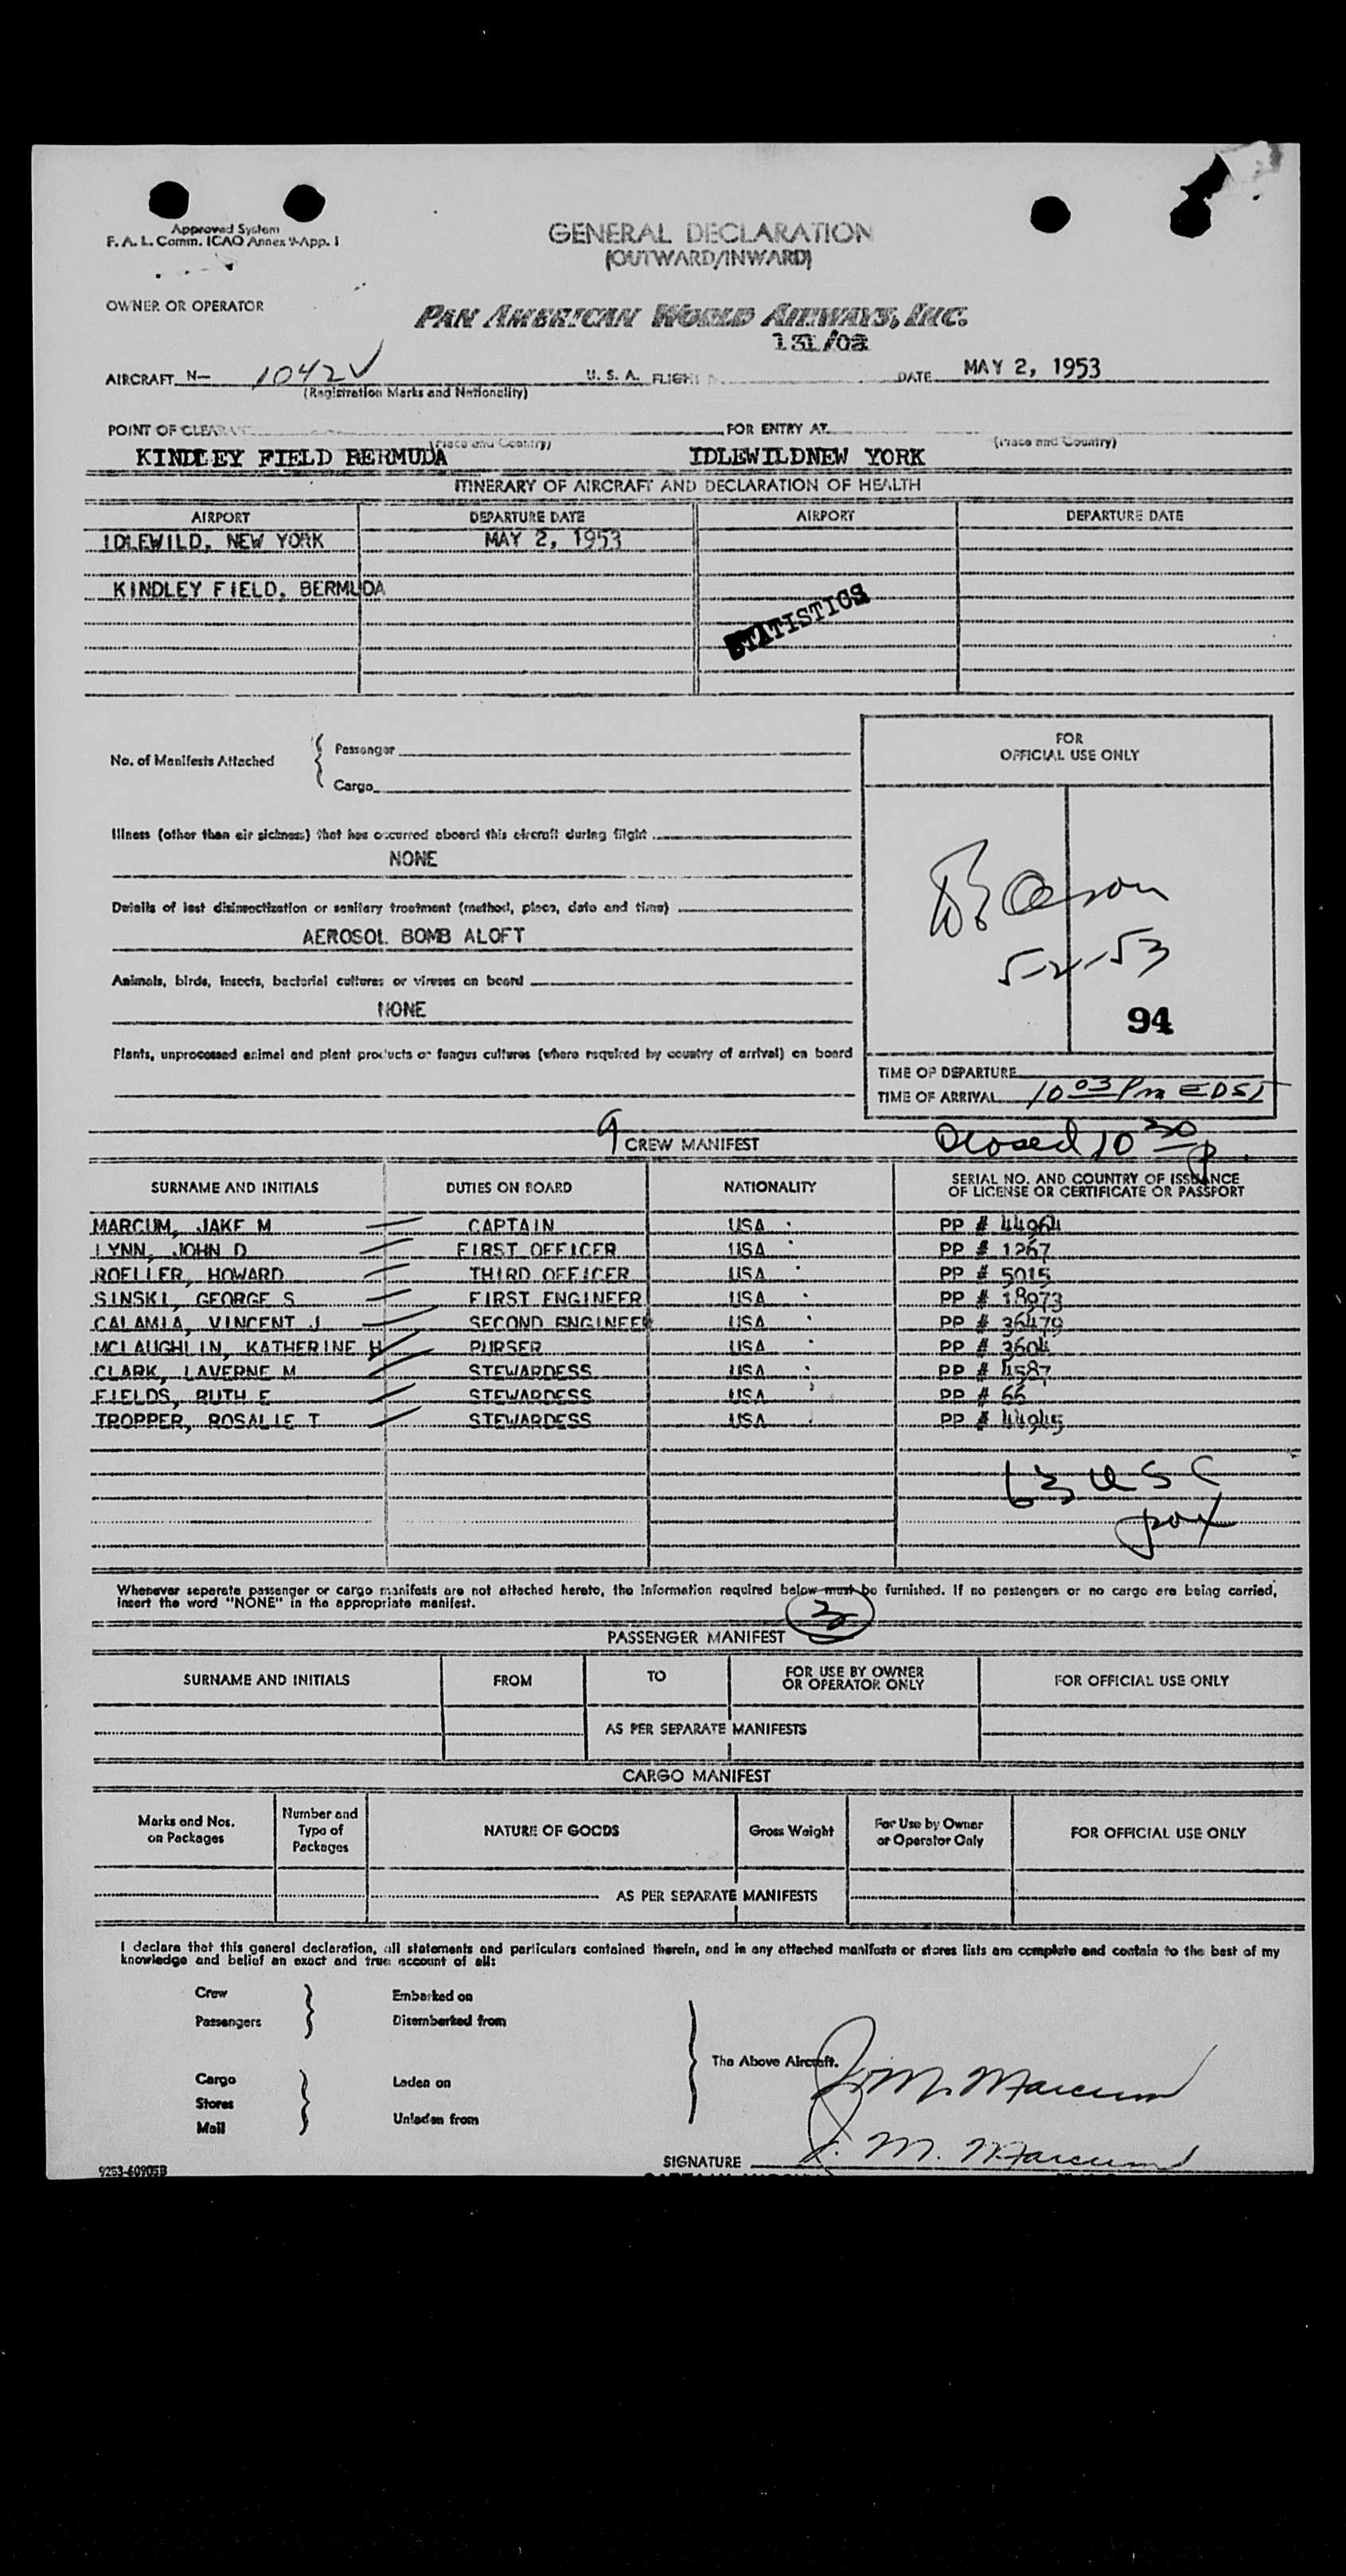 Approved System
F. A. L. Comm. ICAO Annex 9-App. I
GENERAL DECLARATION
(OUTWARD/INWARD)
OWNER OR OPERATOR
PAN AMERICAN WORLD AIRWAYS, INC.
131/02
AIRCRAFT N- 1042V U. S. A. FLIGHT DATE MAY 2, 1953
(Registration Marks and Nationality)
POINT OF CLEARANCE FOR ENTRY AT
(Place and Country) (Place and Country)
KINDLEY FIELD BERMUDA IDLEWILDNEW YORK
ITINERARY OF AIRCRAFT AND DECLARATION OF HEALTH
AIRPORT DEPARTURE DATE AIRPORT DEPARTURE DATE
IDLEWILD, NEW YORK MAY 2, 1953
KINDLEY FIELD, BERMUDA
STATISTICS
FOR
OFFICIAL USE ONLY
No. of Manifests Attached { Passenger
Cargo
Illness (other than air sickness) that has occurred aboard this aircraft during flight
NONE
Details of last disinsectization or sanitary treatment (method, place, date and time)
AEROSOL BOMB ALOFT
5-2-53
Animals, birds, insects, bacterial cultures or viruses on board
NONE
94
Plants, unprocessed animal and plant products or fungus cultures (where required by country of arrival) on board
TIME OF DEPARTURE
TIME OF ARRIVAL 10 03 Pm EDST
9 CREW MANIFEST Closed 10 30 p
SURNAME AND INITIALS DUTIES ON BOARD NATIONALITY SERIAL NO. AND COUNTRY OF ISSUANCE
OF LICENSE OR CERTIFICATE OR PASSPORT
MARCUM, JAKE M CAPTAIN USA PP # 44964
LYNN, JOHN D FIRST OFFICER USA PP # 1267
ROELLER, HOWARD THIRD OFFICER USA PP # 5015
SINSKI, GEORGE S FIRST ENGINEER USA PP # 18973
CALAMIA, VINCENT J SECOND ENGINEER USA PP # 36479
MCLAUGHLIN, KATHERINE H PURSER USA PP # 3604
CLARK, LAVERNE M STEWARDESS USA PP # 4587
FIELDS, RUTH E STEWARDESS USA PP # 66
TROPPER, ROSALIE T STEWARDESS USA PP # 44945
63 USC
Whenever separate passenger or cargo manifests are not attached hereto, the information required below must be furnished. If no passengers or no cargo are being carried,
insert the word "NONE" in the appropriate manifest.
PASSENGER MANIFEST
SURNAME AND INITIALS FROM TO FOR USE BY OWNER
OR OPERATOR ONLY FOR OFFICIAL USE ONLY
AS PER SEPARATE MANIFESTS
CARGO MANIFEST
Marks and Nos.
on Packages Number and
Type of
Packages NATURE OF GOODS Gross Weight For Use by Owner
or Operator Only FOR OFFICIAL USE ONLY
AS PER SEPARATE MANIFESTS
I declare that this general declaration, all statements and particulars contained therein, and in any attached manifests or stores lists are complete and contain to the best of my
knowledge and belief an exact and true account of all:
Crew Embarked on
Passengers Disembarked from
The Above Aircraft. J. M. Marcum
Cargo Laden on
Stores
Mail Unladen from
SIGNATURE J. M. Marcum
9253-60905B